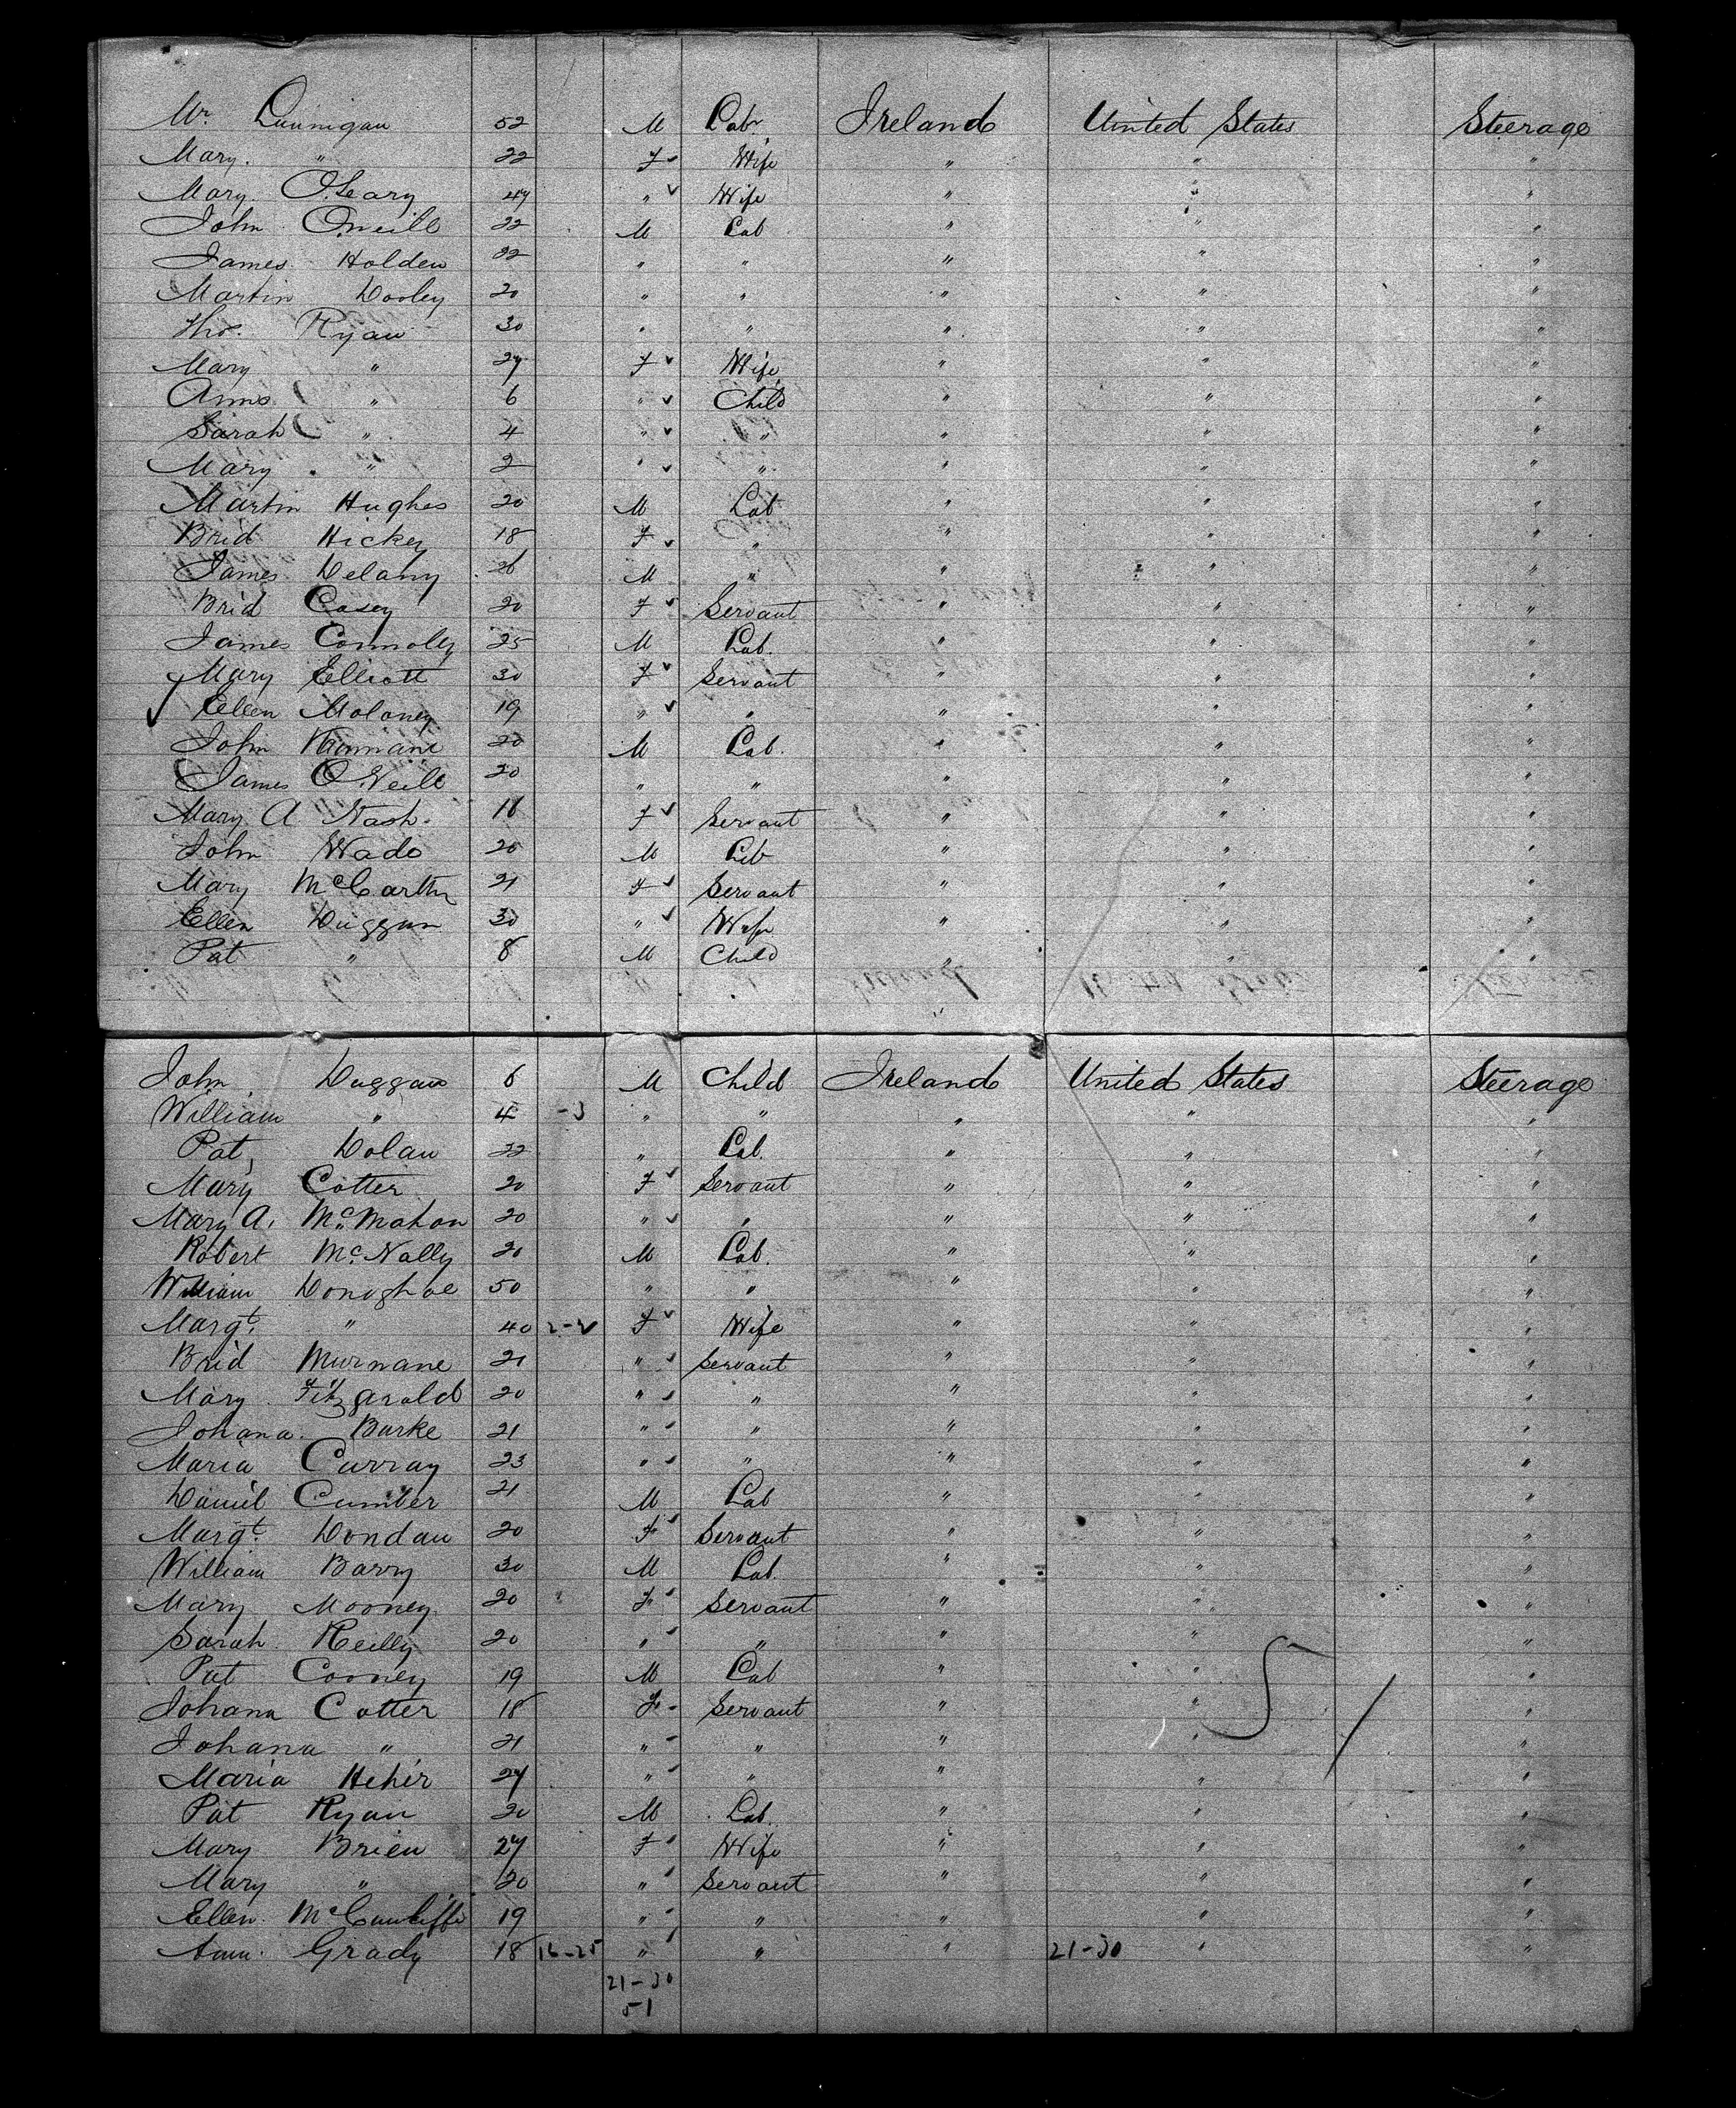 Mr. Dunnigan 52 M Labr Ireland United States Steerage
Mary. " 22 F Wife " " "
Mary O'Leary 47 " Wife " " "
John Oneill 22 M Lab " " "
James Holden 22 " " " " "
Martin Dooley 20 " " " " "
Tho. Ryan 30 " " " " "
Mary " 27 F Wife " " "
Anns " 6 " Child " " "
Sarah " 4 " " " " "
Mary " 2 " " " " "
Martin Hughes 20 M Lab " " "
Brid Hickey 18 F " " " "
James Delany 26 M " " " "
Brid Casey 20 F Servant " " "
James Connolly 25 M Lab. " " "
Mary Elliott 30 F Servant " " "
Ellen Moloney 19 " " " " "
John 20 M Lab. " " "
James O'Neill 20 " " " " "
Mary A Nash. 18 F Servant " " "
John Wade 20 M Lab " " "
Mary McCarthy 21 F Servant " " "
Ellen Duggan 30 " Wife " " "
Pat " 8 M Child " " "
John Duggan 6 M Child Ireland United States Steerage
William " 4 -3 " " " " "
Pat Dolan 22 " Lab. " " "
Mary Cotter 20 F Servant " " "
Mary A. McMahon 20 " " " " "
Robert McNally 20 M Lab. " " "
William Donoghoe 50 " " " " "
Margt. " 40 2-2 F Wife " " "
Brid Murnane 21 " Servant " " "
Mary Fitzgarald 20 " " " " "
Johana. Burke 21 " " " " "
Maria Curray 23 " " " " "
Daniel Cumber 21 M Lab " " "
Margt. Dondan 20 F Servant " " "
William Barry 30 M Lab. " " "
Mary Mooney 20 F Servant " " "
Sarah Reilly 20 " " " " "
Pat Cooney 19 M Lab " " "
Johana Cotter 18 F Servant " " "
Johana " 21 " " " " "
Maria Hehir 27 " " " " "
Pat Ryan 20 M Lab. " " "
Mary Brien 27 F Wife " " "
Mary " 20 " Servant " " "
Ellen McCunliffe 19 " " " " "
Ann. Grady 18 16-25 " " " 21-30 " "
21-30
51